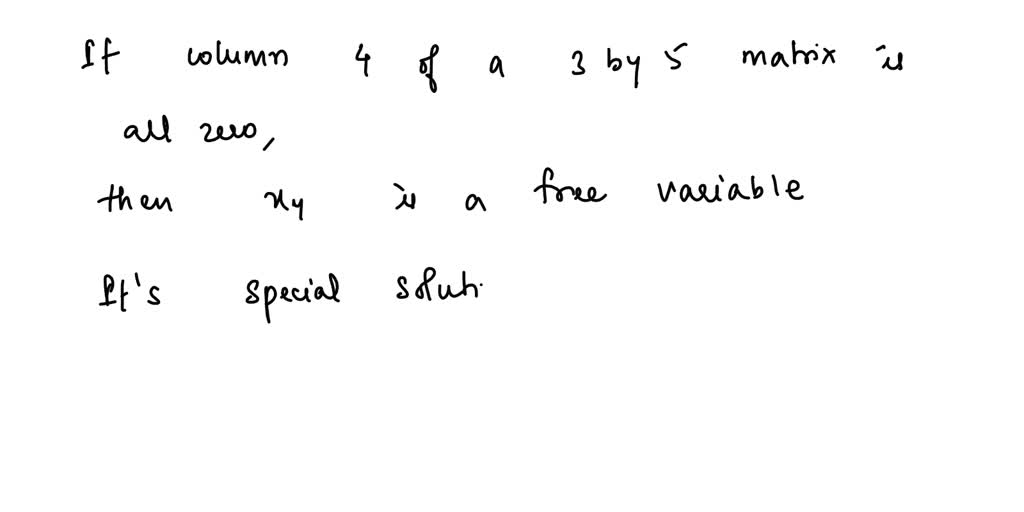 If column 4 of a 3 by 5 matrix is
all zero,
then x4 is a free variable
It's special soluti